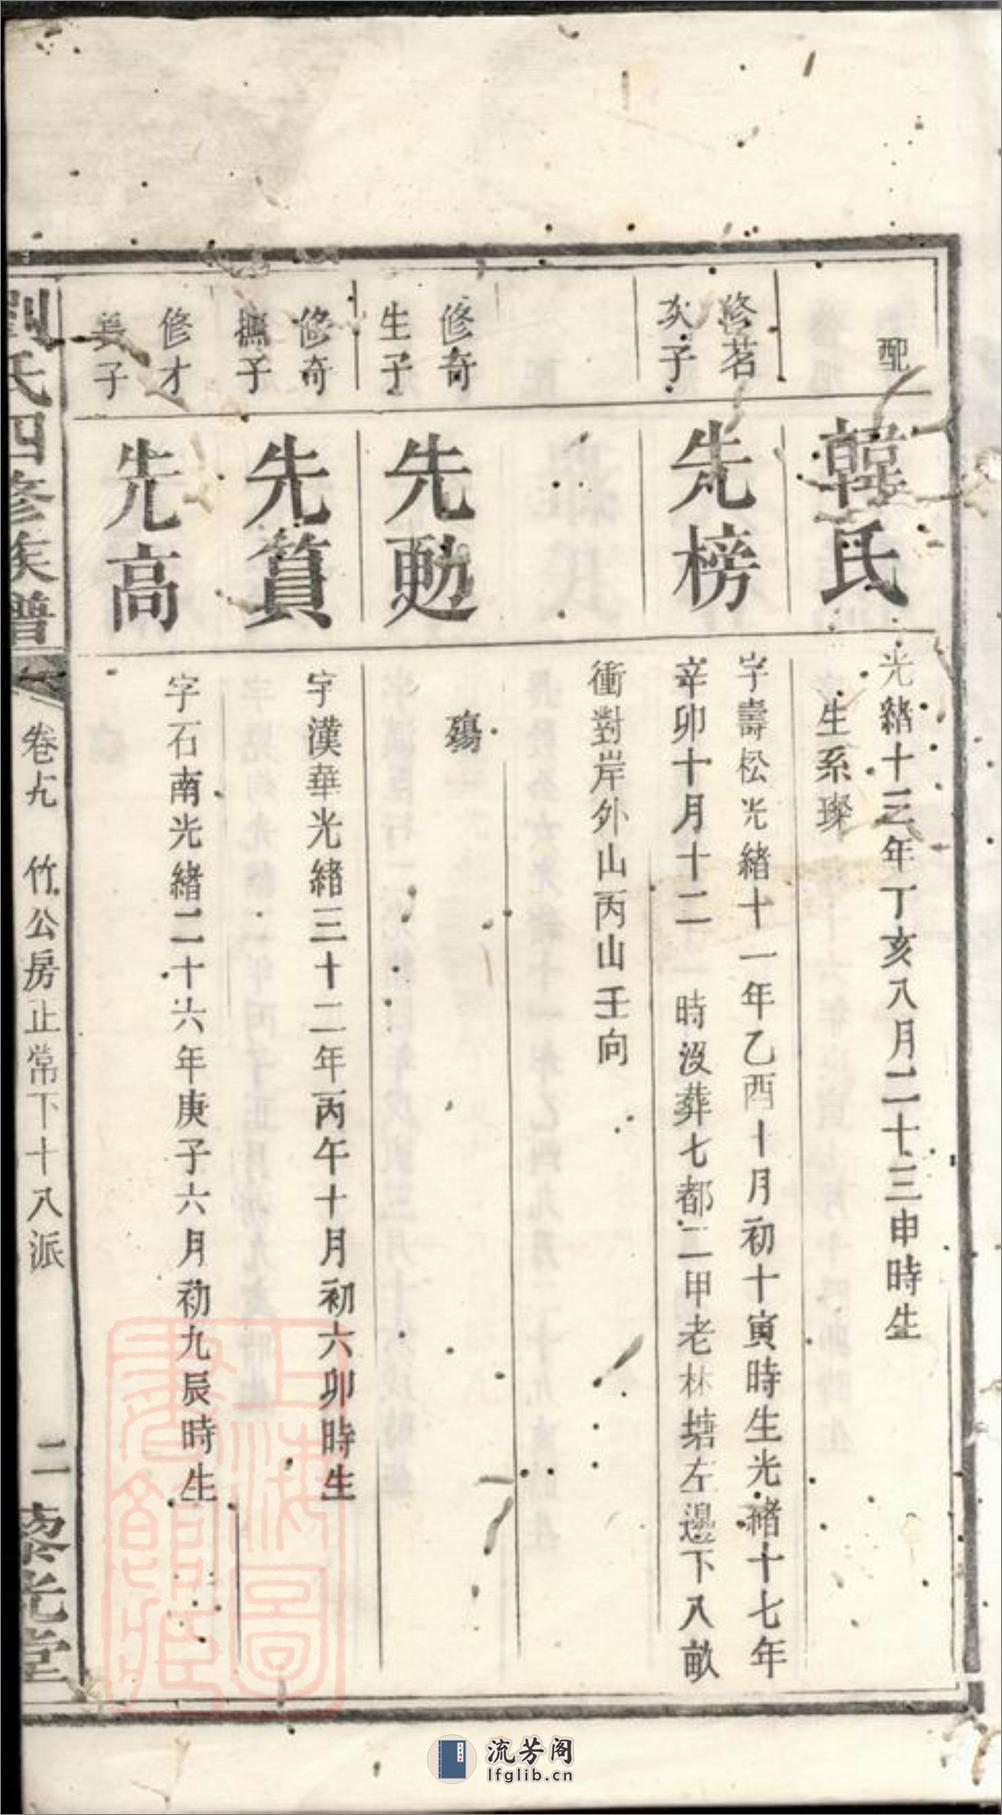 配
韓氏
光緒十三年丁亥八月二十三申時生
生系璨
修茗
次子
先榜
字壽松光緒十一年乙酉十月初十寅時生光緒十七年
辛卯十月十二 時沒葬七都二甲老林塘左邊下八畝
衝對岸外山丙山壬向
修奇
生子
先勉
殤
修奇
撫子
先簣
字漢華光緒三十二年丙午十月初六卯時生
修才
長子
先高
字石南光緒二十六年庚子六月初九辰時生
劉氏四修族譜
卷九 竹公房止常下十八派
二 黎光堂
上海圖書館藏
流芳阁
lfglib.cn